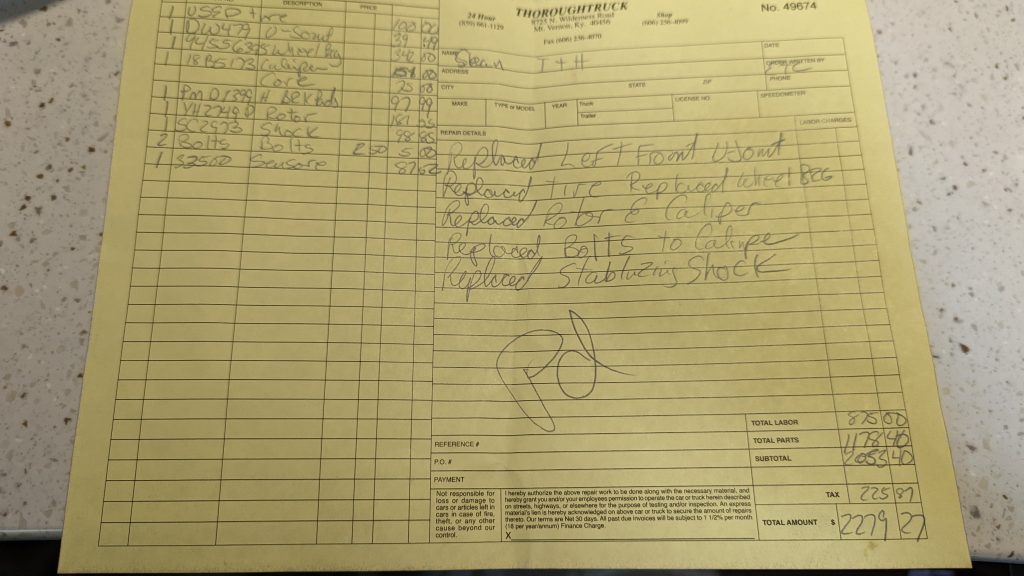 DESCRIPTION PRICE
1 USED tire 100 00
1 DW479 U-Joint 39
1 Wheel Brg 340 00
1 18B5173 Caliper 151 00
Core 75 00
1 BRK Pads 97 99
1 Rotor 181
1 SC2973 Shock 98
2 Bolts Bolts 2 50 5 00
1 Sensore 87
24 Hour
THOROUGHTRUCK
8725 N. Wilderness Road
Mt. Vernon, Ky. 40456
Fax (606) 256-4070
Shop
(606) 256-4099
No. 49674
NAME Sean T + H
DATE
ADDRESS
ORDER WRITTEN BY
CITY STATE ZIP PHONE
MAKE TYPE or MODEL YEAR Truck LICENSE NO. SPEEDOMETER
Trailer
REPAIR DETAILS LABOR CHARGES
Replaced Left Front UJoint
Replaced tire Replaced Wheel BRG
Replaced Rotor & Caliper
Replaced Bolts to Calipe
Replaced Stablizing Shock
Pd
TOTAL LABOR 875 00
REFERENCE # TOTAL PARTS 1178 40
P.O. # SUBTOTAL 2053 40
PAYMENT
Not responsible for
loss or damage to
cars or articles left in
cars in case of fire,
theft, or any other
cause beyond our
control.
I hereby authorize the above repair work to be done along with the necessary material, and
hereby grant you and/or your employees permission to operate the car or truck herein described
on streets, highways, or elsewhere for the purpose of testing and/or inspection. An express
material's lien is hereby acknowledged on above car or truck to secure the amount of repairs
thereto. Our terms are Net 30 days. All past due invoices will be subject to 1 1/2% per month
(18 per year/annum) Finance Charge.
X
TAX 225 87
TOTAL AMOUNT $ 2279 27